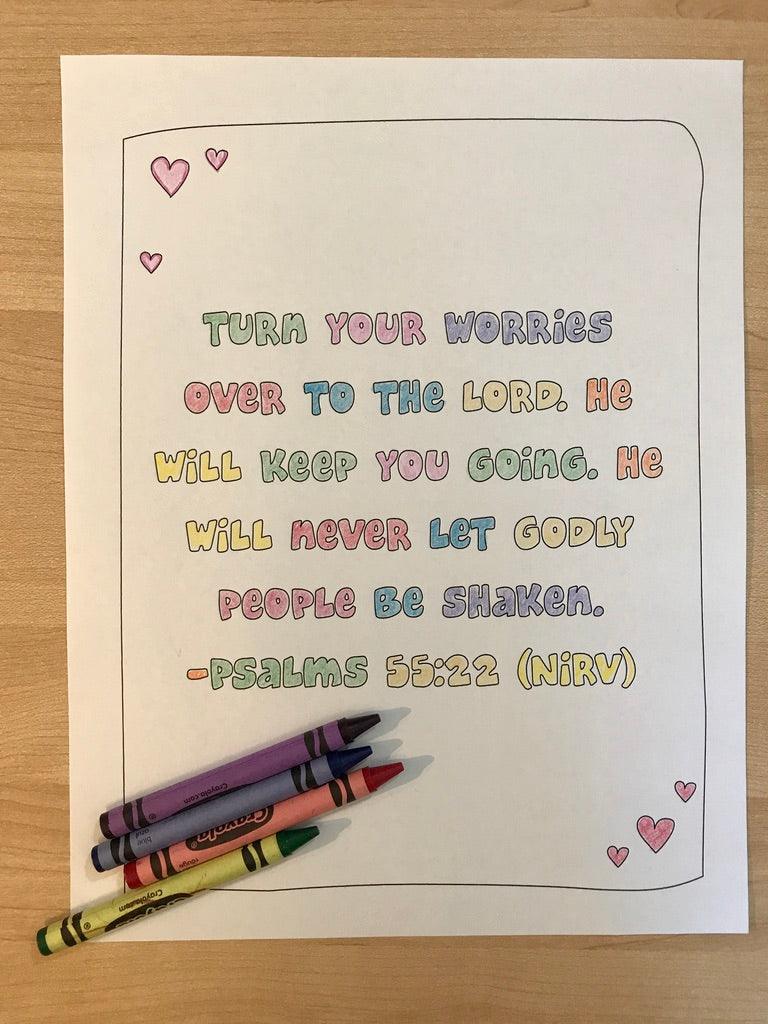 TURN YOUR WORRIES
OVER TO THE LORD. HE
WILL KEEP YOU GOING. HE
WILL NEVER LET GODLY
PEOPLE BE SHAKEN.
-PSALMS 55:22 (NIRV)
Crayola.com
blue
Crayola®
Crayola.com